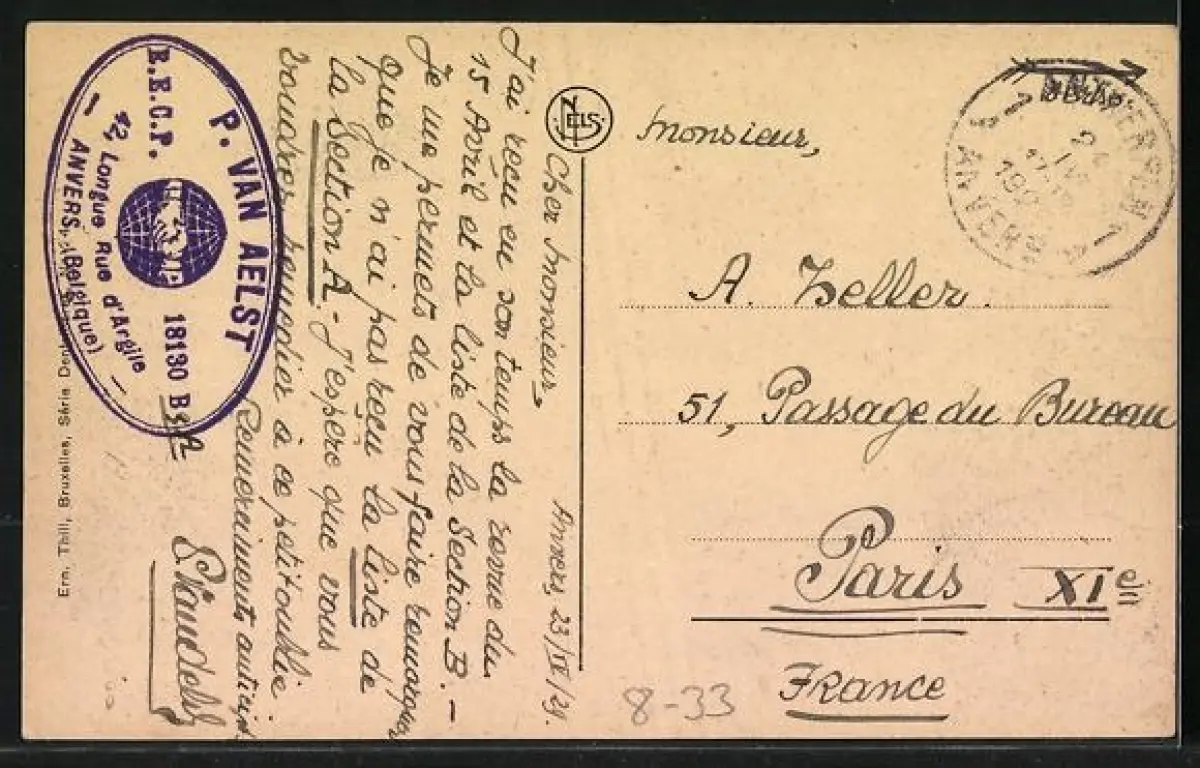 Anvers, 23/IV/29.
Cher Monsieur,
J'ai reçu en son temps la revue du
15 Avril et la liste de la Section B. -
Je me permets de vous faire remarquer
que je n'ai pas reçu la liste de
la Section A - J'espère que vous
voudrez remedier à ce petit oubli
Remerciments anticip.
NELS
P. VAN AELST
E.E.C.P. 18130 BEA
42, Longue Rue d'Argile
ANVERS, (Belgique)
Ern. Thill, Bruxelles, Série
ANTWERPEN
ANVERS
Monsieur,
A. Zeller.
51, Passage du Bureau
Paris XIe
France
8-33